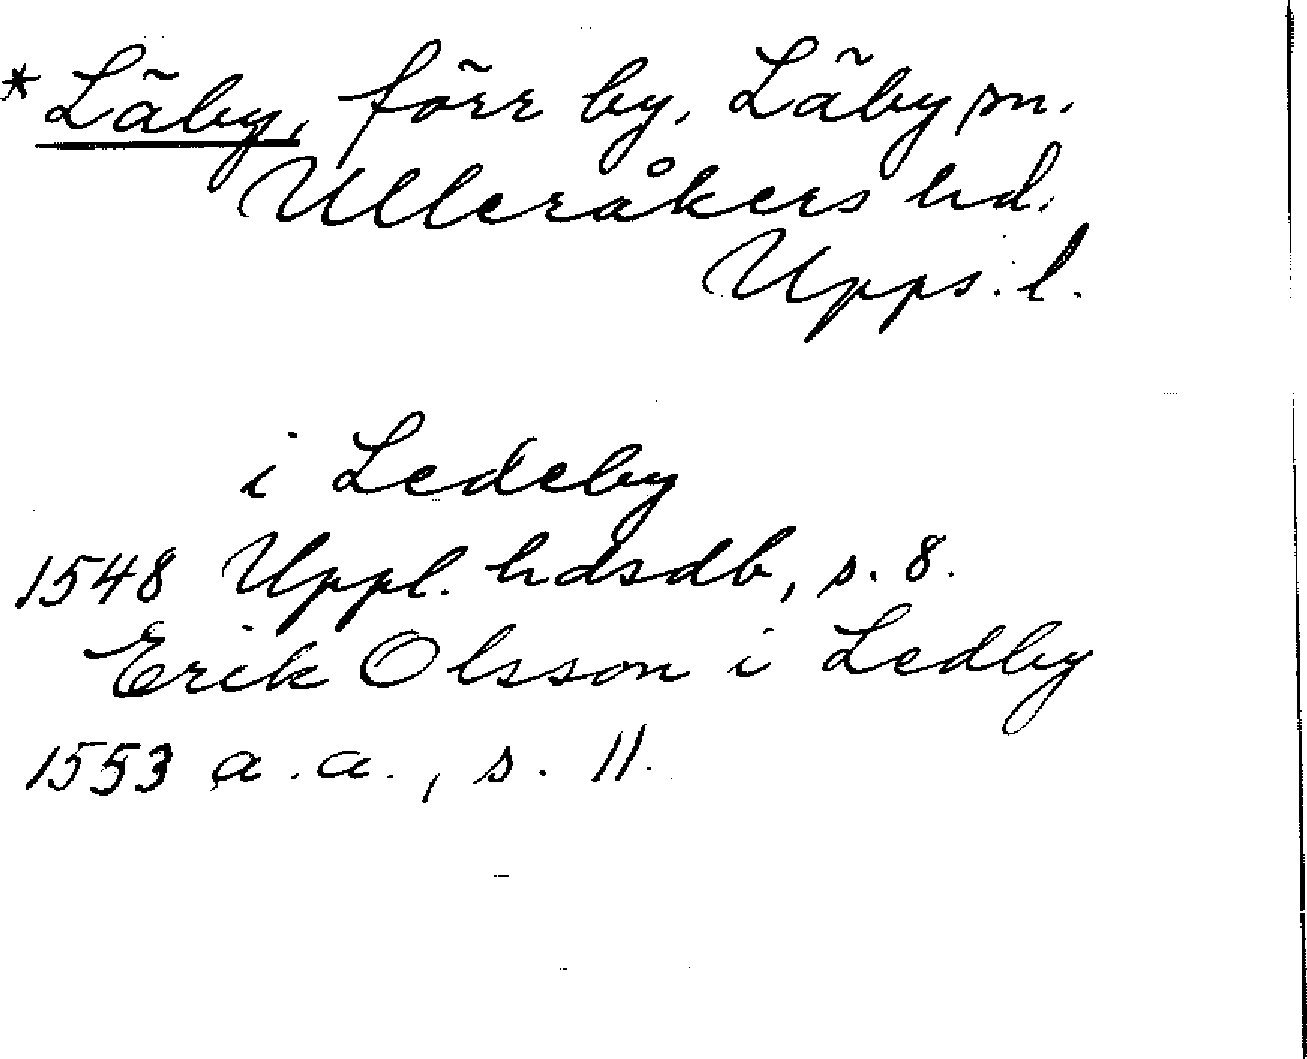 *Läby, förr by, Läby sn.
Ulleråkers hd.
Upps. l.
i Ledeby
1548 Uppl. hdsdb, s. 8.
Erik Olsson i Ledby
1553 a.a., s. 11.